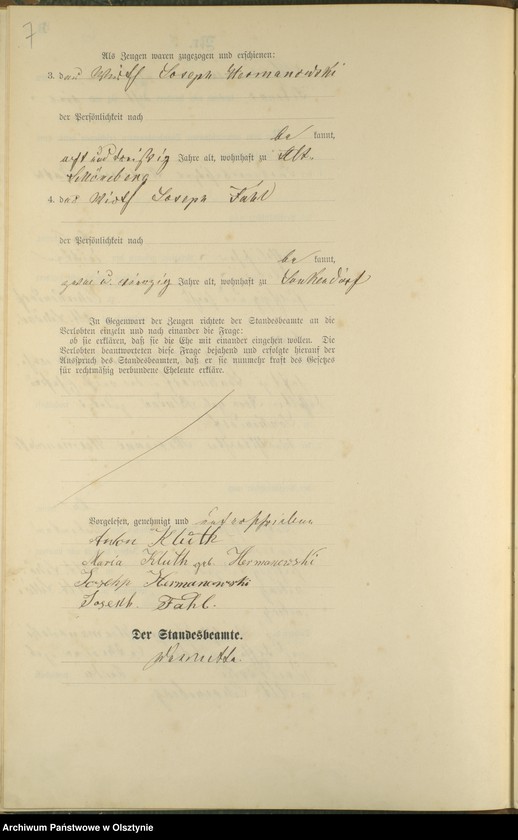 7
Als Zeugen waren zugezogen und erschienen:
3. der Wirth Joseph Hermanowski
der Persönlichkeit nach
be kannt,
acht und dreißig Jahre alt, wohnhaft zu Alt-
Schöneberg
4. der Wirth Joseph Fahl
der Persönlichkeit nach
be kannt,
zwei u. vierzig Jahre alt, wohnhaft zu
In Gegenwart der Zeugen richtete der Standesbeamte an die
Verlobten einzeln und nach einander die Frage:
ob sie erklären, daß sie die Ehe mit einander eingehen wollen. Die
Verlobten beantworteten diese Frage bejahend und erfolgte hierauf der
Ausspruch des Standesbeamten, daß er sie nunmehr kraft des Gesetzes
für rechtmäßig verbundene Eheleute erkläre.
Vorgelesen, genehmigt und unterschrieben
Anton Kluth
Maria Kluth geb. Hermanowski
Joseph Hermanowski
Joseph Fahl.
Der Standesbeamte.
Archiwum Państwowe w Olsztynie